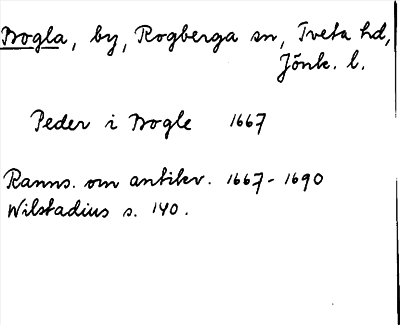 Bogla, by, Rogberga sn, Tveta hd,
Jönk. l.
Peder i Bogle 1667
Ranns. om antikv. 1667-1690
Wilstadius s. 140.